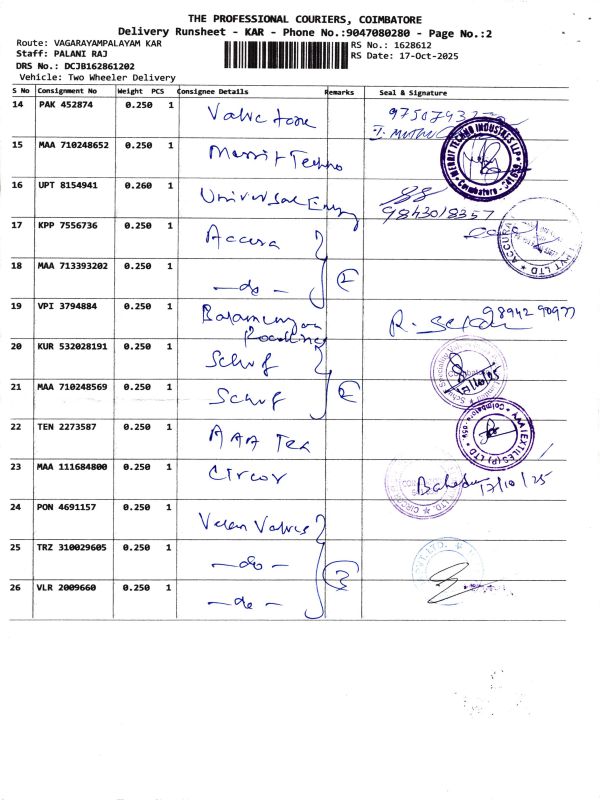 THE PROFESSIONAL COURIERS, COIMBATORE
Delivery Runsheet - KAR - Phone No.:9047080280 - Page No.:2
Route: VAGARAYAMPALAYAM KAR
RS No.: 1628612
Staff: PALANI RAJ
RS Date: 17-Oct-2025
DRS No.: DCJB162861202
Vehicle: Two Wheeler Delivery
S No Consignment No Weight PCS Consignee Details Remarks Seal & Signature
14 PAK 452874 0.250 1
15 MAA 710248652 0.250 1 Merrit Techno
MERRIT TECHNO INDUSTRIES LLP
Coimbatore
16 UPT 8154941 0.260 1 Universal
9843018357
17 KPP 7556736 0.250 1 Accura
ACCURA PVT LTD
18 MAA 713393202 0.250 1 - do - 2
19 VPI 3794884 0.250 1 R. Sekar 9894290977
20 KUR 532028191 0.250 1 Schuf
17/10/25
21 MAA 710248569 0.250 1 Schuf 2
22 TEN 2273587 0.250 1 AAA Tex
Coimbatore
23 MAA 111684800 0.250 1 Circor 17/10/25
24 PON 4691157 0.250 1 Velan Valves
25 TRZ 310029605 0.250 1 - do - 3
26 VLR 2009660 0.250 1 - do -